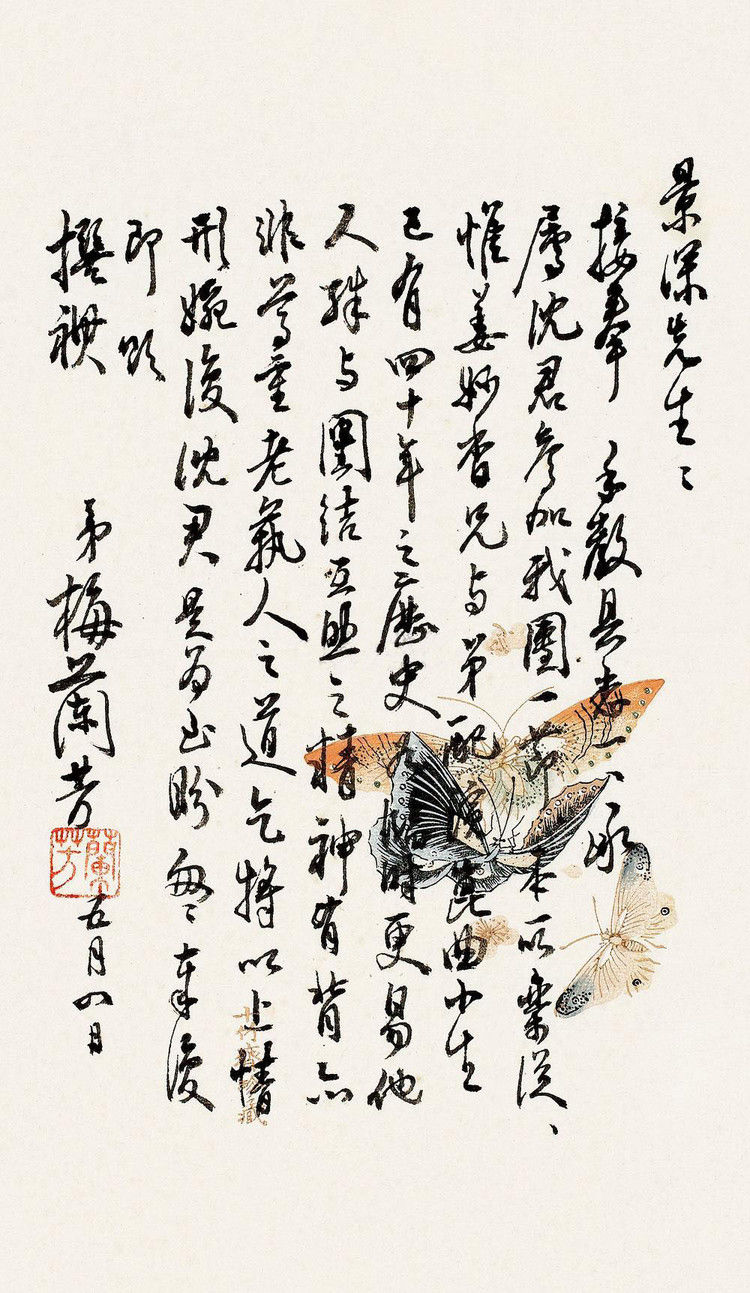 景深先生：
接奉 手教具悉一一承
属沈君參加我團一節本所樂從、
惟姜妙香兄与弟配演崑曲小生
已有四十年之歷史臨時更易他
人殊与團結互助之精神有背亦
非尊重老藝人之道乞将以上情
形婉復沈君是为至盼匆匆奉復
即頌
撰祺
弟梅蘭芳
五月四日